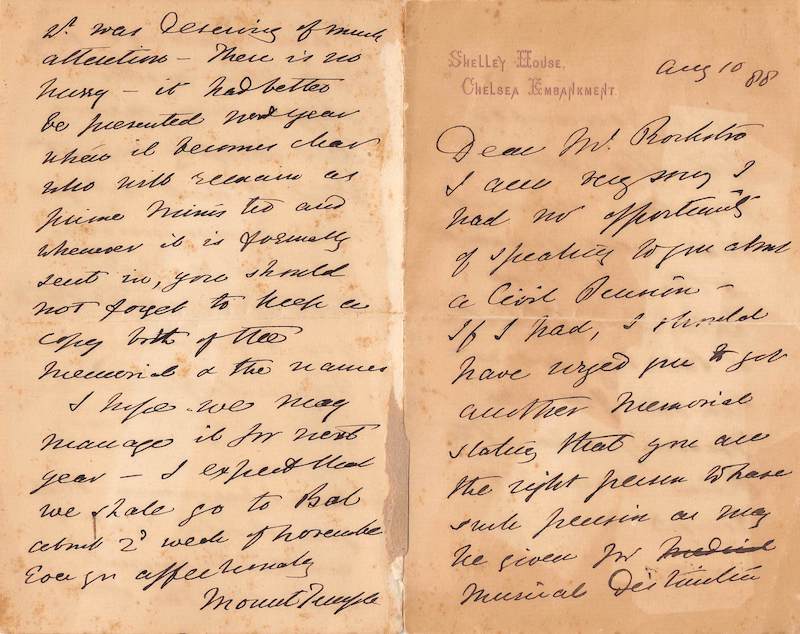 Shelley House,
Chelsea Embankment.
Aug 10 88
Dear Mr. Rockstro
I am very sorry I
had no opportunity
of speaking to you about
a Civil Pension –
If I had, I should
have urged you to get
another Memorial
stating that you are
the right person to have
such pension as may
be given for
Musical Distinction
was Deserving of much
attention – There is no
hurry – it had better
be presented next year
when it becomes clear
who will remain as
prime Minister and
whenever it is formally
sent in, you should
not forget to keep a
copy both of the
Memorial & the names
I hope we may
manage it for next
year – I expect that
we shall go to
about 2d week of November
Ever yr affectionately
Mount Temple